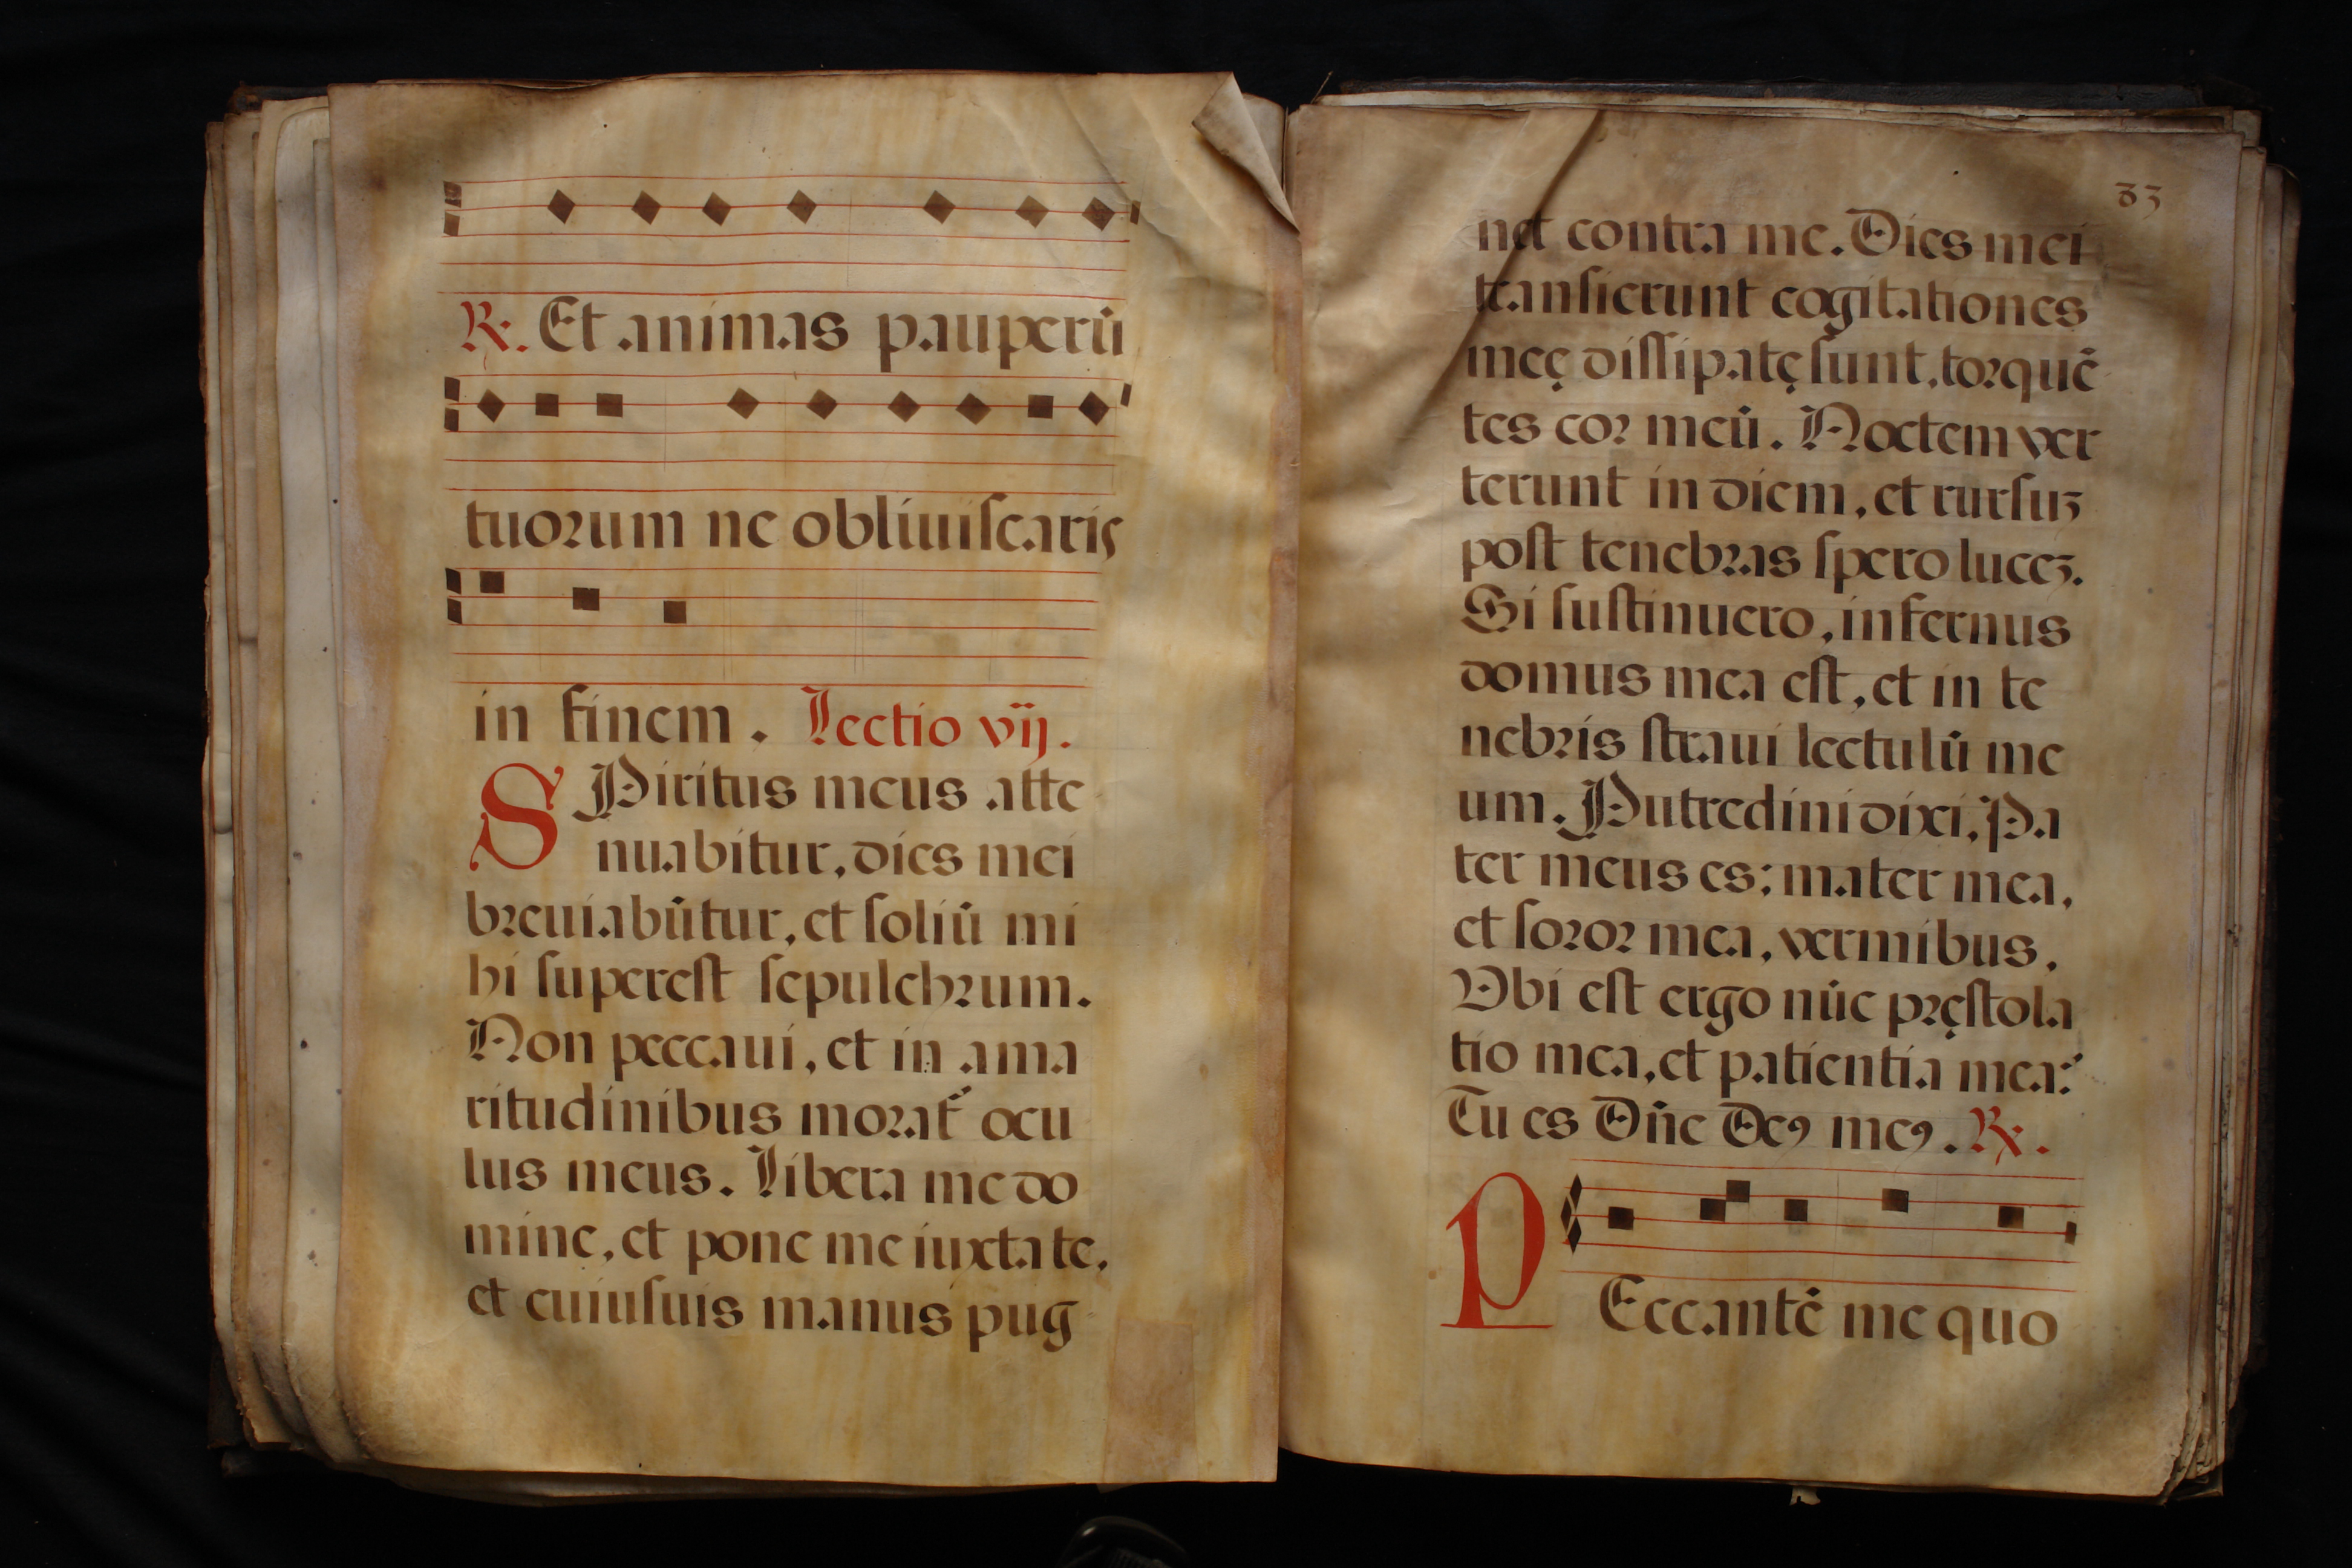 ℟. Et animas pauperū
tuorum ne obliuiſcaris
in finem. Lectio vij.
SPiritus meus atte
nuabitur, dies mei
breuiabūtur, et ſoliū mi
hi ſupereſt ſepulchrum.
Non peccaui, et in ama
ritudinibus morat᷑ ocu
lus meus. Libera me do
mine, et pone me iuxta te,
et cuiuſuis manus pug
83
net contra me. Dies mei
tranſierunt cogitationes
meę diſſipatę ſunt, torquē
tes cor meū. Noctem ver
terunt in diem, et rurſuꝫ
poſt tenebras ſpero luceꝫ.
Si ſuſtinuero, infernus
domus mea eſt, et in te
nebris ſtraui lectulū me
um. Putredini dixi, Pa
ter meus es; mater mea,
et ſoror mea, vermibus.
Vbi eſt ergo nūc pręſtola
tio mea, et patientia mea?
Tu es Dn̄e Deꝰ meꝰ. ℟.
PEccantē me quo